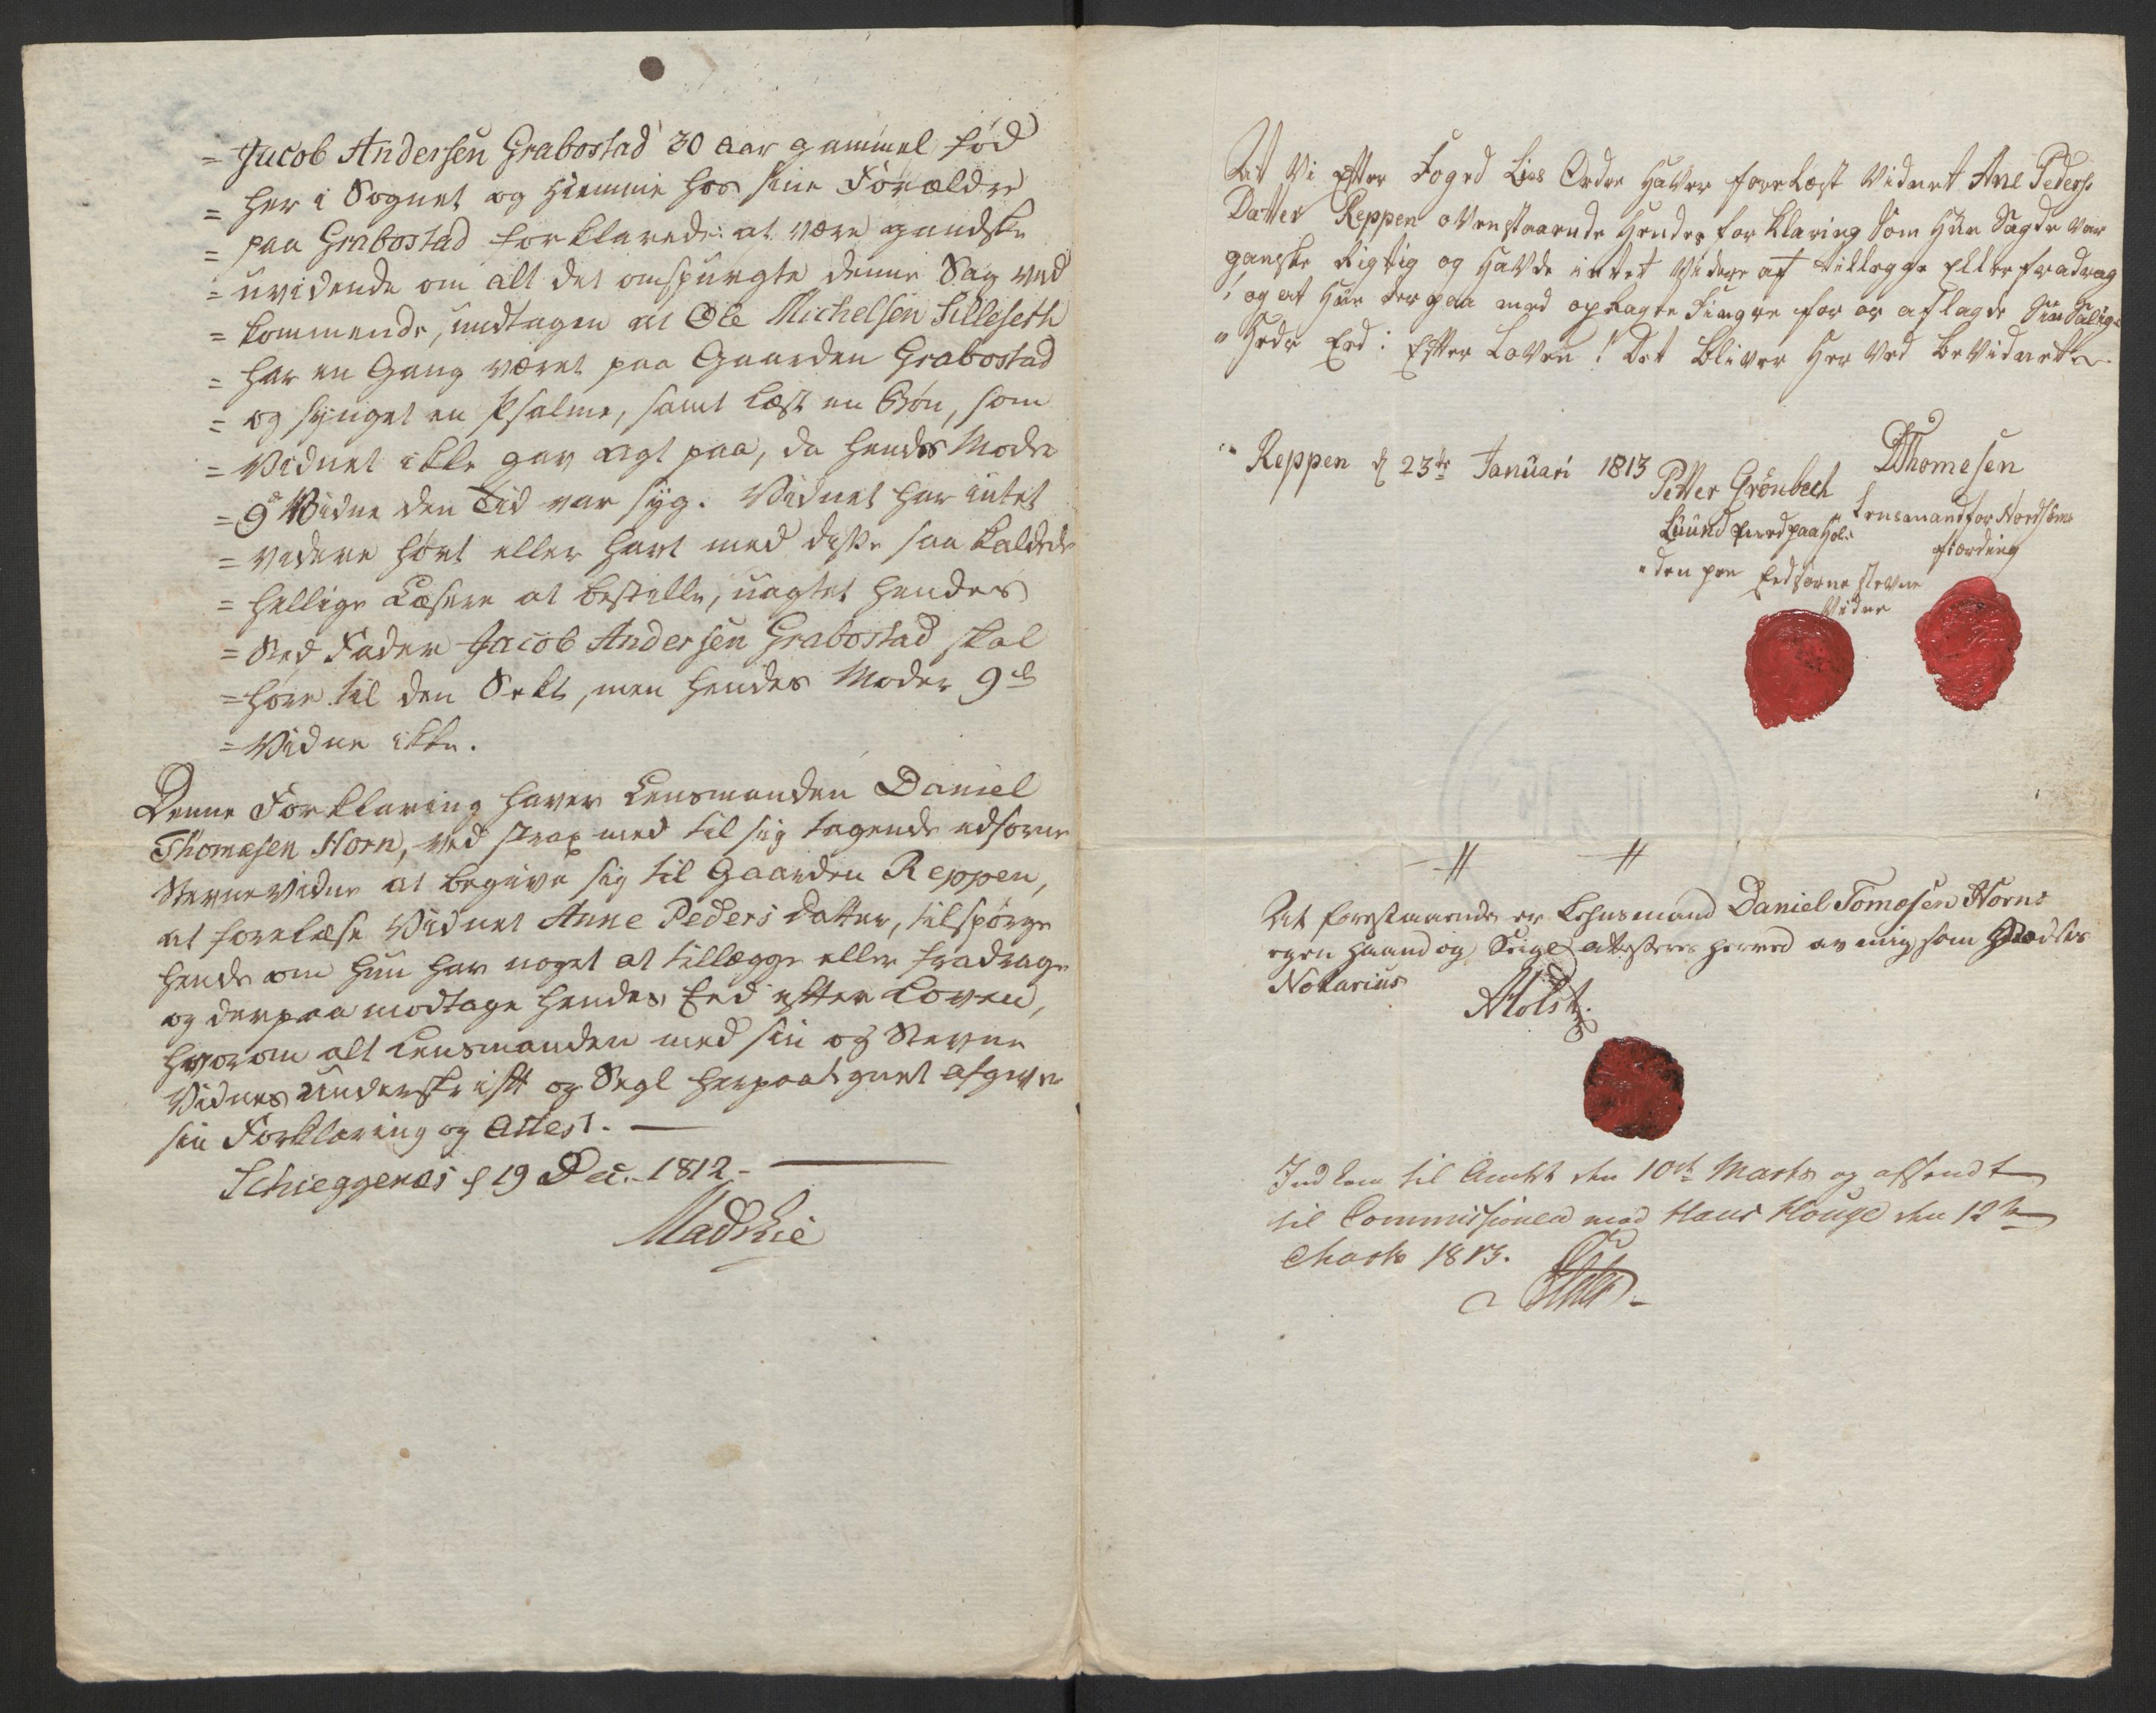 = Jacob Andersen Grabostad 30 aar gammel fød
= her i Sognet og Hiemme hos sine Forældre
= paa Grabostad forklarede: at være gandske
= uvidende om alt det omspurgte denne Sag ved
= kommende, undtagen at Ole Michelsen Silleseth
= har en Gang været paa Gaarden Grabostad
= og synget en Psalme, samt læst en Bøn, som
= Vidnet ikke gav agt paa, da hendes Moder
= 9de Vidne den Tid var syg. Vidnet har intet
= videre hørt eller havt med disse saa kaldede
= hellige Læsere at bestille, uagtet hendes
= Sted Fader Jacob Andersen Grabostad skal
= høre til den Sekt, men hendes Moder 9de
= Vidne ikke.
Denne Forklaring haver Lensmanden Daniel
Thomesen Horn, ved strax med til sig tagende edsorne
Stevnevidne at begive sig til Gaarden Reppen,
at forelæse Vidnet Anne Peders datter, tilspørge
hende om hun har noget at tillægge eller fradrage
og derpaa modtage hendes Eed efter Loven,
hvorom alt Lensmanden med sin og Stevne
Vidnes Underskrift og Segl herpaategnet afgiver
sin Forklaring og Attest. —
Schieggenæs d 19 Dec. 1812 —
Mads Lie
At Vi Efter Foged Lies Ordre Haver forelæst Vidnet Ane Peders
Datter Reppen ovenstaaende Hendes forklaring Som Hun Sagde var
ganske Rigtig og Havde intet Videre at tillegge Eller fradrag
og at Hun der paa med oprakte Fingre for os aflagde Sin Salig
heds Eed: Efter Loven! Det bliver Her Ved beVidnet
Reppen d 23de Januari 1813
Petter Grönbech
Luund paa Hol
den Eedsorne Stevne
Vidne
DThomesen
Lensmand for Nordsöms
fiording
At forestaaende er Lehnsmand Daniel Tomesen Horns
egen Haand og Seigl attesteres herved av mig som Stedets
Notarius
Holst.
Indkom til Amtet den 10de Marts og afsendt
til Commissionen mod Hans Houge den 12te
Marts 1813.